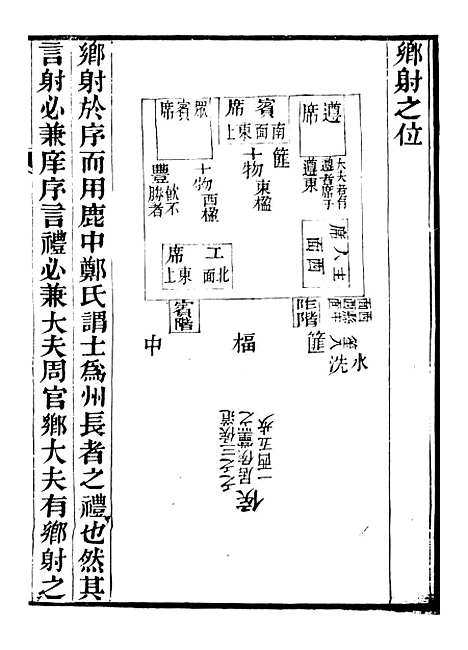 鄉射之位
遵席
大夫若有遵者席于遵東
主人席西面
賓席南面東上
篚
十物東楹
眾賓席
十物西楹
豐飲不勝者
工席北面東上
賓階
阼階
篚
洗
水
楅
中
侯
鄉射於序而用鹿中鄭氏謂士為州長者之禮也然其
言射必兼庠序言禮必兼大夫周官鄉大夫有鄉射之